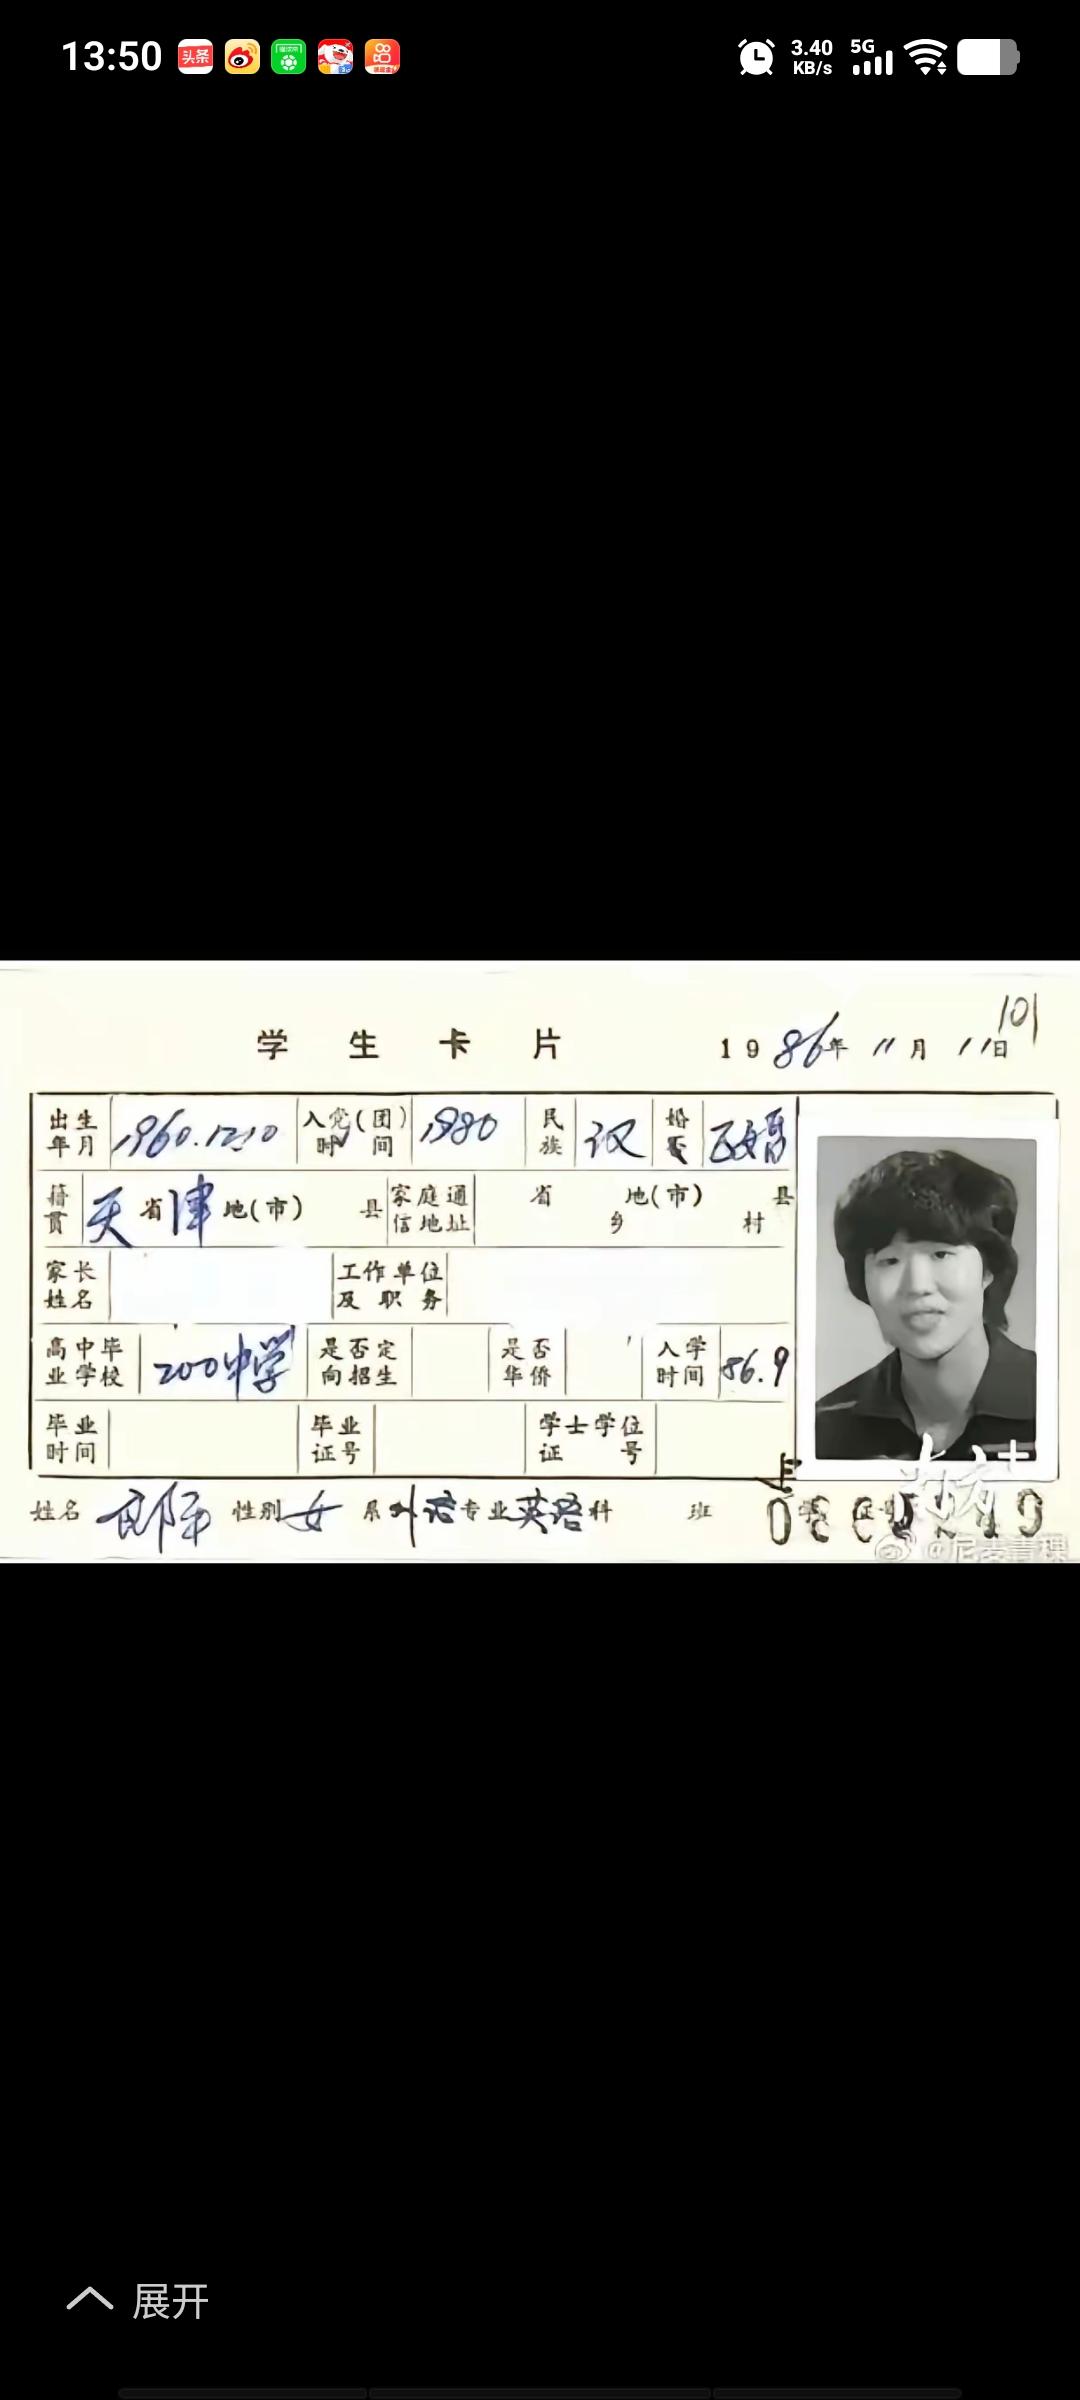 13:50 头条 3.40 KB/s 5G
101
学生卡片 1986年11月11日
出生年月 1960.12.10 入党(团)时间 1980 民族 汉 婚否 已婚
籍贯 天省津地(市) 县 家庭通信地址 省 地(市) 县 乡 村
家长姓名 工作单位及职务
高中毕业学校 200中学 是否定向招生 是否华侨 入学时间 86.9
毕业时间 毕业证号 学士学位证号
姓名 郎平 性别 女 系 外语 专业 英语 科 班
@尼麦青稞
展开